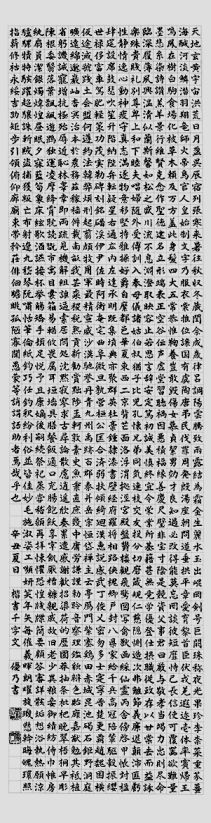 天地玄黃宇宙洪荒日月盈昃辰宿列張寒來暑往秋收冬藏閏餘成歲律呂調陽雲騰致雨露結為霜金生麗水玉出崑岡劍號巨闕珠稱夜光果珍李柰菜重芥薑
海鹹河淡鱗潛羽翔龍師火帝鳥官人皇始制文字乃服衣裳推位讓國有虞陶唐弔民伐罪周發殷湯坐朝問道垂拱平章愛育黎首臣伏戎羌遐邇壹體率賓歸王
鳴鳳在樹白駒食場化被草木賴及萬方蓋此身髮四大五常恭惟鞠養豈敢毀傷女慕貞潔男效才良知過必改得能莫忘罔談彼短靡恃己長信使可覆器欲難量
墨悲絲染詩讚羔羊景行維賢克念作聖德建名立形端表正空谷傳聲虛堂習聽禍因惡積福緣善慶尺璧非寶寸陰是競資父事君曰嚴與敬孝當竭力忠則盡命
臨深履薄夙興溫凊似蘭斯馨如松之盛川流不息淵澄取映容止若思言辭安定篤初誠美慎終宜令榮業所基籍甚無竟學優登仕攝職從政存以甘棠去而益詠
樂殊貴賤禮別尊卑上和下睦夫唱婦隨外受傅訓入奉母儀諸姑伯叔猶子比兒孔懷兄弟同氣連枝交友投分切磨箴規仁慈隱惻造次弗離節義廉退顛沛匪虧
性靜情逸心動神疲守真志滿逐物意移堅持雅操好爵自縻都邑華夏東西二京背邙面洛浮渭據涇宮殿盤鬱樓觀飛驚圖寫禽獸畫彩仙靈丙舍傍啟甲帳對楹
肆筵設席鼓瑟吹笙升階納陛弁轉疑星右通廣內左達承明既集墳典亦聚群英杜稿鍾隸漆書壁經府羅將相路俠槐卿戶封八縣家給千兵高冠陪輦驅轂振纓
世祿侈富車駕肥輕策功茂實勒碑刻銘磻溪伊尹佐時阿衡奄宅曲阜微旦孰營桓公匡合濟弱扶傾綺迴漢惠說感武丁俊乂密勿多士寔寧晉楚更霸趙魏困橫
假途滅虢踐土會盟何遵約法韓弊煩刑起翦頗牧用軍最精宣威沙漠馳譽丹青九州禹跡百郡秦并嶽宗泰岱禪主云亭雁門紫塞雞田赤城昆池碣石鉅野洞庭
曠遠綿邈巖岫杳冥治本於農務茲稼穡俶載南畝我藝黍稷稅熟貢新勸賞黜陟孟軻敦素史魚秉直庶幾中庸勞謙謹敕聆音察理鑑貌辨色貽厥嘉猷勉其祗植
省躬譏誡寵增抗極殆辱近恥林皋幸即兩疏見機解組誰逼索居閒處沉默寂寥求古尋論散慮逍遙欣奏累遣慼謝歡招渠荷的歷園莽抽條枇杷晚翠梧桐早凋
陳根委翳落葉飄颻遊鵾獨運凌摩絳霄耽讀玩市寓目囊箱易輶攸畏屬耳垣牆具膳餐飯適口充腸飽飫烹宰飢厭糟糠親戚故舊老少異糧妾御績紡侍巾帷房
紈扇圓潔銀燭煒煌晝眠夕寐藍筍象床弦歌酒讌接杯舉觴矯手頓足悅豫且康嫡後嗣續祭祀烝嘗稽顙再拜悚懼恐惶箋牒簡要顧答審詳骸垢想浴執熱願涼
驢騾犢特駭躍超驤誅斬賊盜捕獲叛亡布射遼丸嵇琴阮嘯恬筆倫紙鈞巧任釣釋紛利俗並皆佳妙毛施淑姿工顰妍笑年矢每催曦暉朗曜璇璣懸斡晦魄環照
指薪修祜永綏吉劭矩步引領俯仰廊廟束帶矜莊徘徊瞻眺孤陋寡聞愚蒙等誚謂語助者焉哉乎也